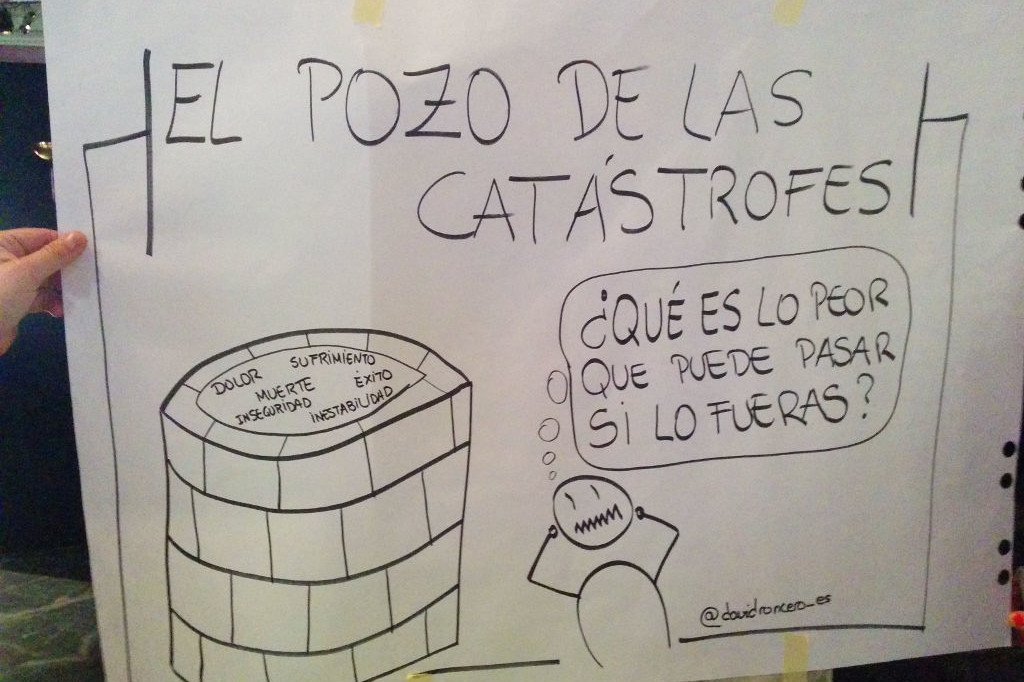 EL POZO DE LAS
CATÁSTROFES
¿QUÉ ES LO PEOR
QUE PUEDE PASAR
SI LO FUERAS?
DOLOR SUFRIMIENTO
MUERTE ÉXITO
INSEGURIDAD INESTABILIDAD
@davidroncero_es